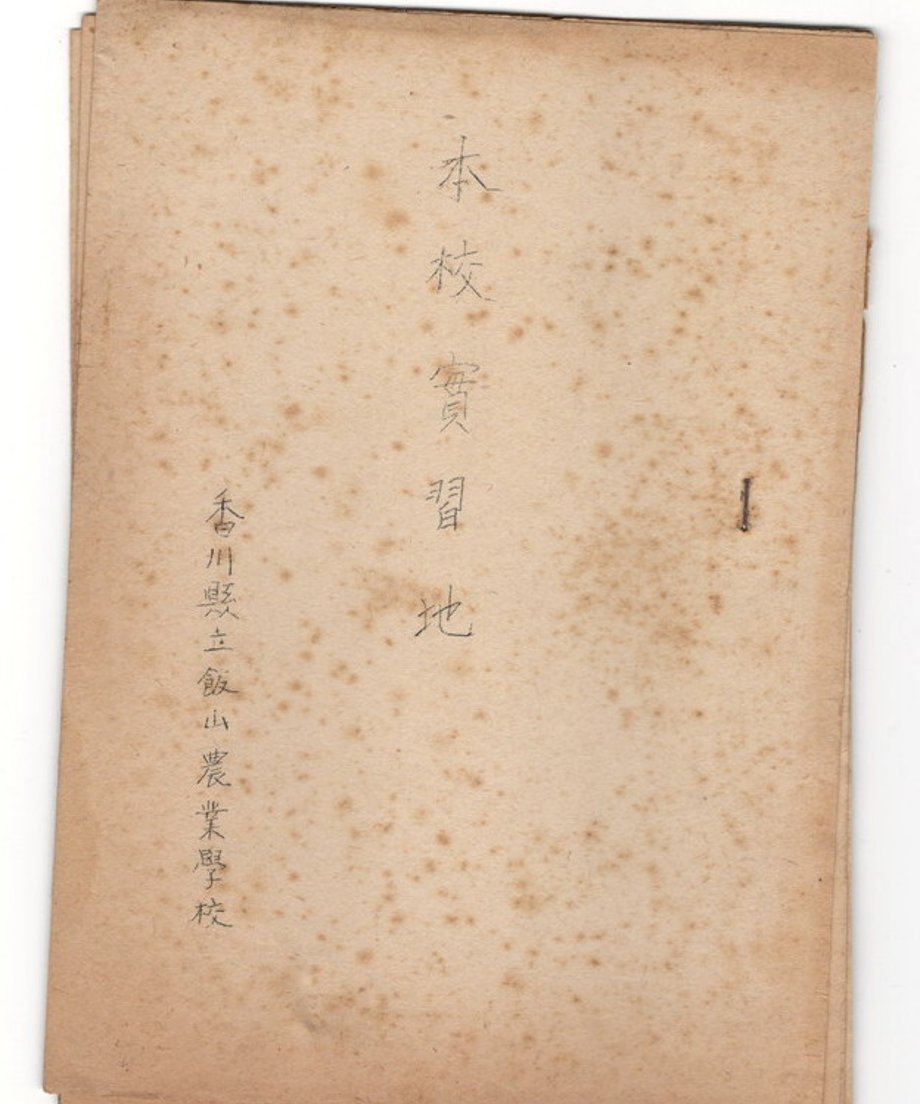 本校實習地
香川縣立飯山農業學校